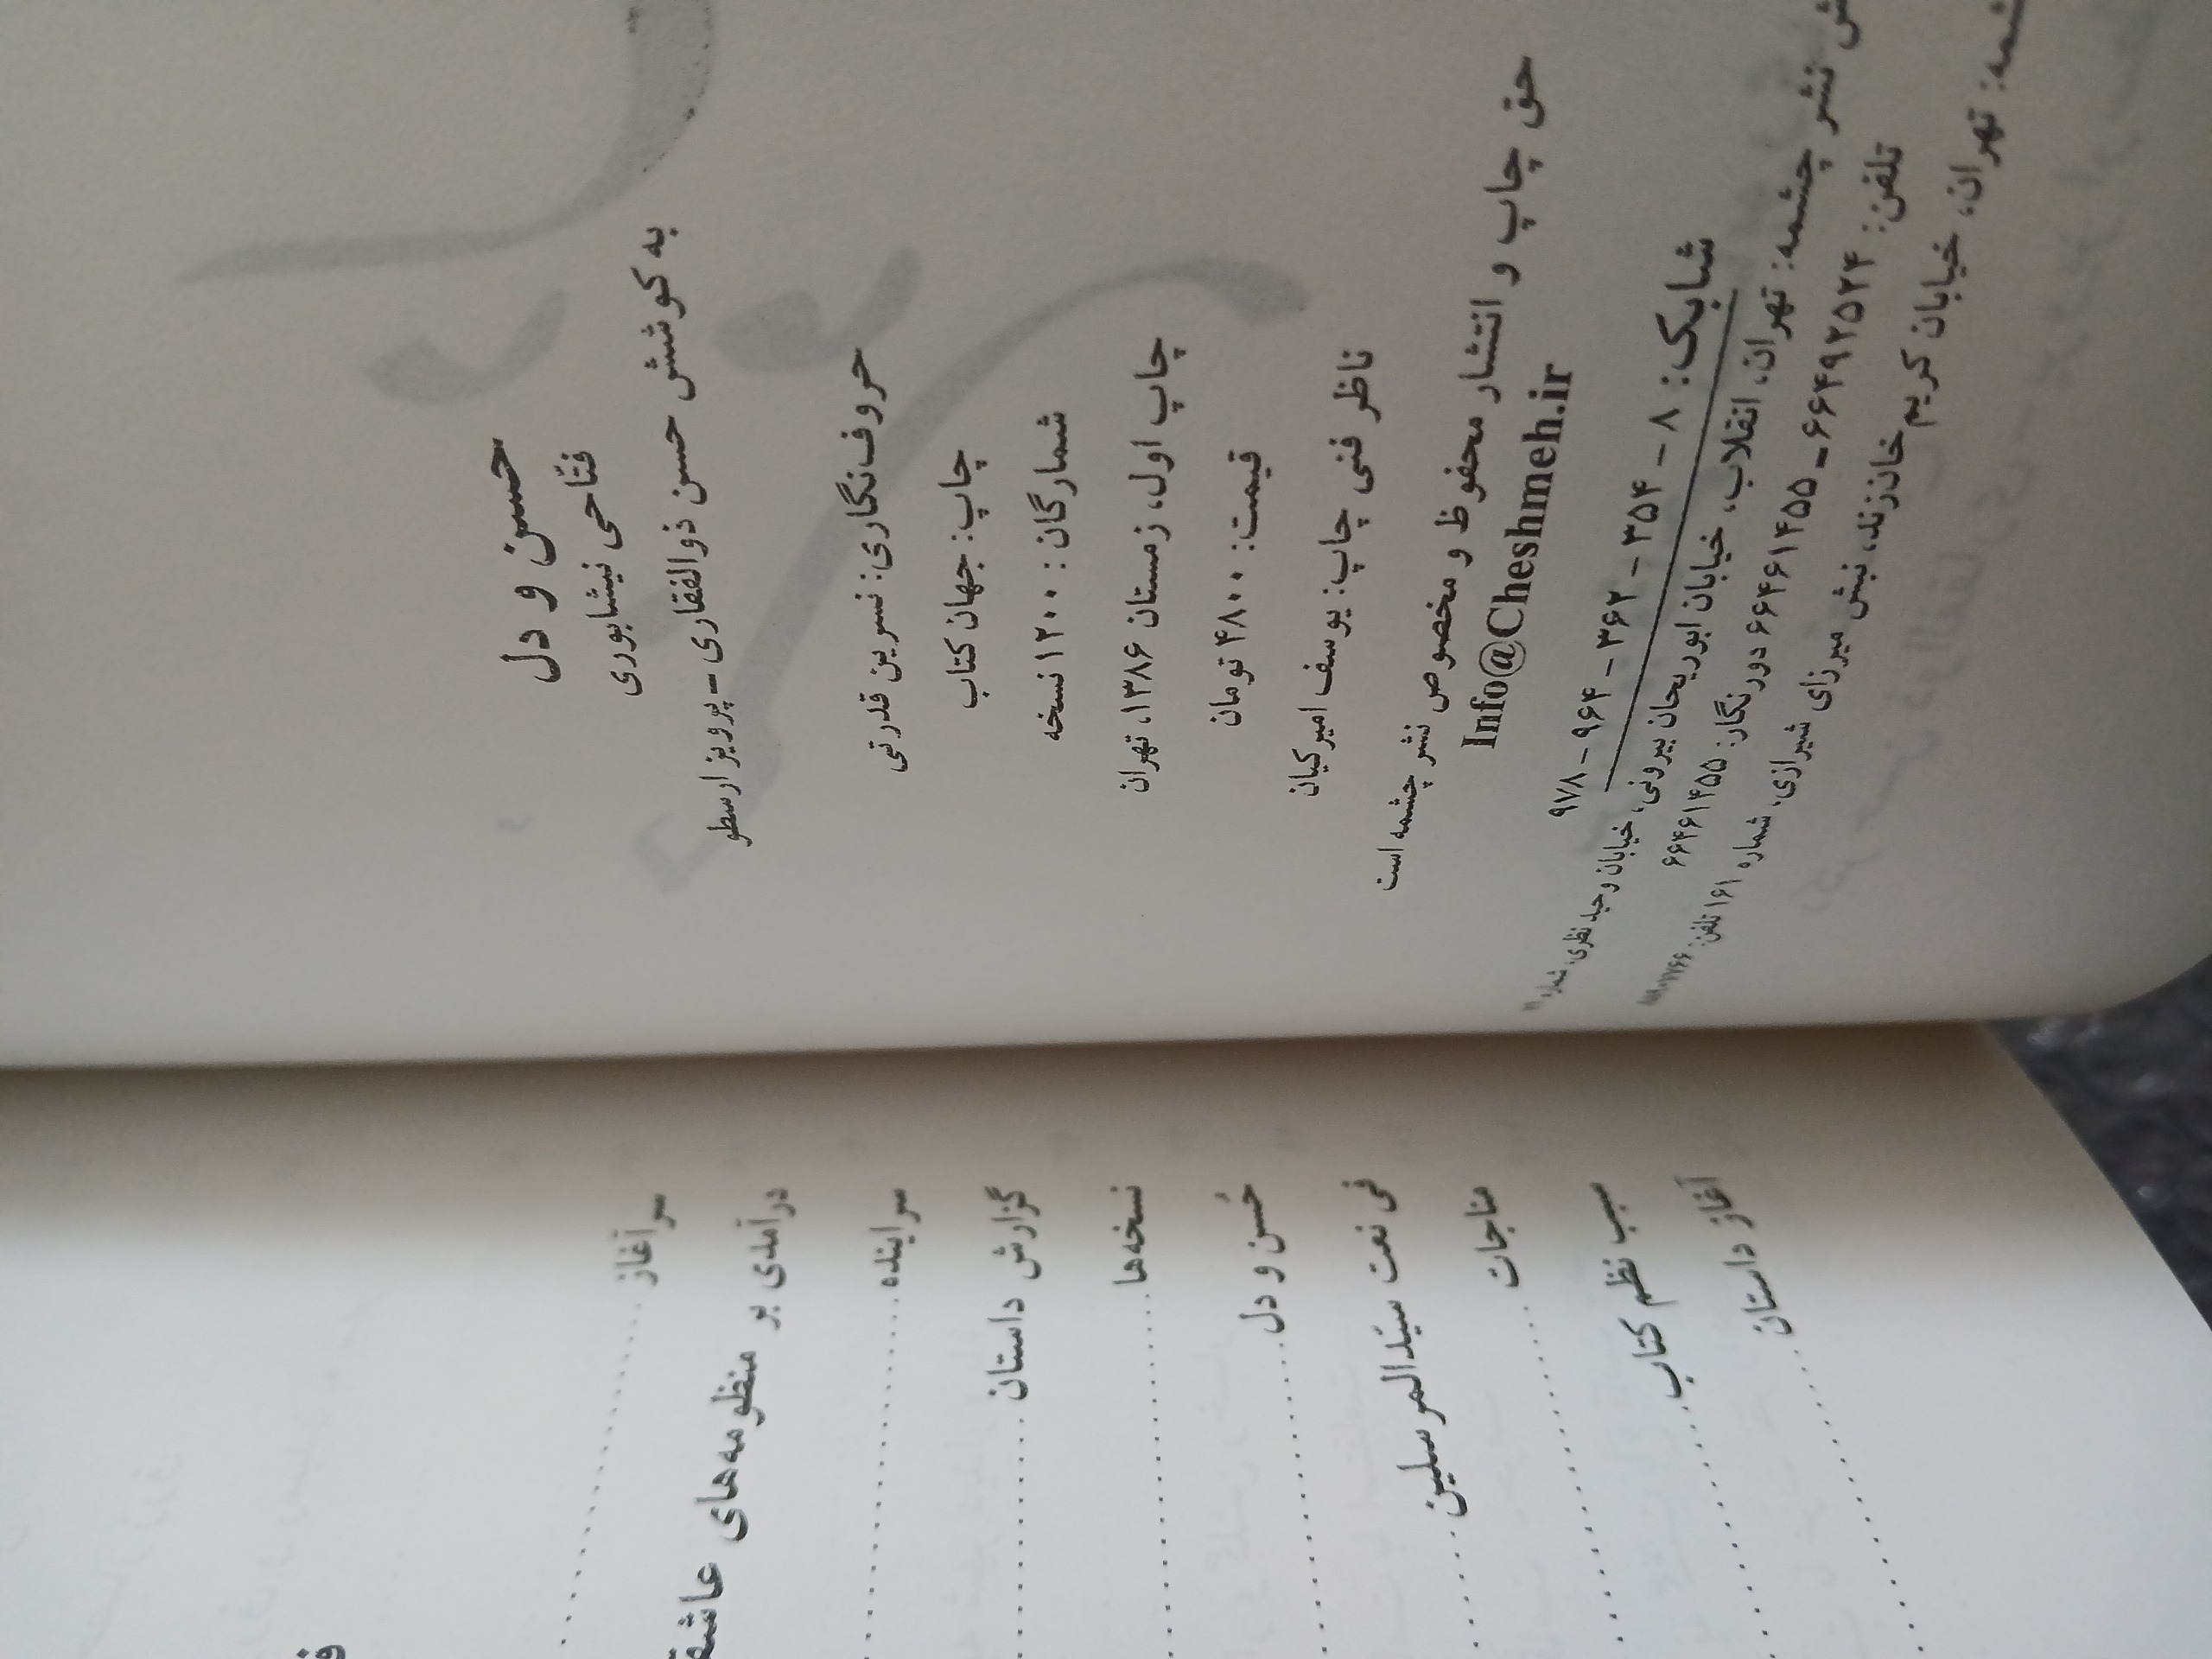 حسن و دل
فتّاحی نیشابوری
به کوشش حسن ذوالفقاری - پرویز ارسطو
حروف‌نگاری: نسرین قدرتی
چاپ: جهان کتاب
شمارگان: ۱۲۰۰ نسخه
چاپ اول، زمستان ۱۳۸۶، تهران
قیمت: ۴۸۰۰ تومان
ناظر فنی چاپ: یوسف امیرکیان
حق چاپ و انتشار محفوظ و مخصوص نشر چشمه است
Info@Cheshmeh.ir
شابک: ۸ - ۳۵۴ - ۳۶۲ - ۹۶۴ - ۹۷۸
نشر چشمه: تهران، انقلاب، خیابان ابوریحان بیرونی، خیابان وحید نظری، شماره
تلفن: ۶۶۴۹۲۵۲۴ - ۶۶۴۶۱۴۵۵ دورنگار: ۶۶۴۶۱۴۵۵
تهران، خیابان کریم‌خان زند، نبش میرزای شیرازی، شماره ۱۶۱ تلفن:
سرآغاز
درآمدی بر منظومه‌های
سراینده
گزارش داستان
نسخه‌ها
حُسن و دل
فی نعت سیّدالمرسلین
مناجات
سبب نظم کتاب
آغاز داستان